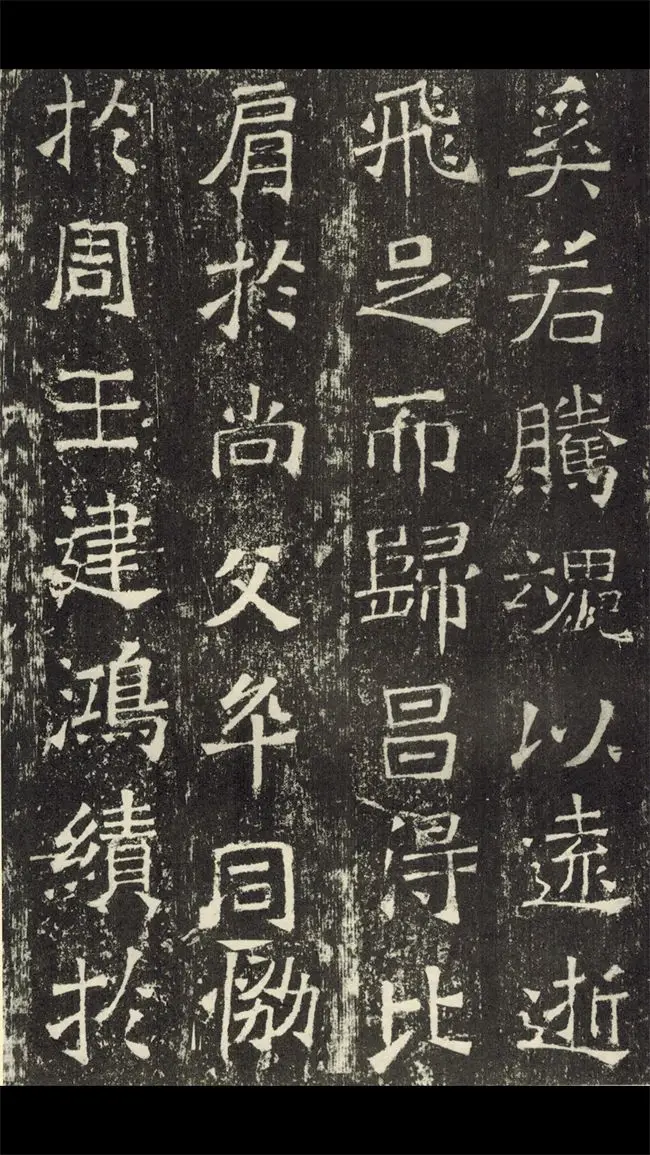 奚若騰魂以遠逝
飛足而歸昌得比
肩於尚父卒同
於周王建鴻績於